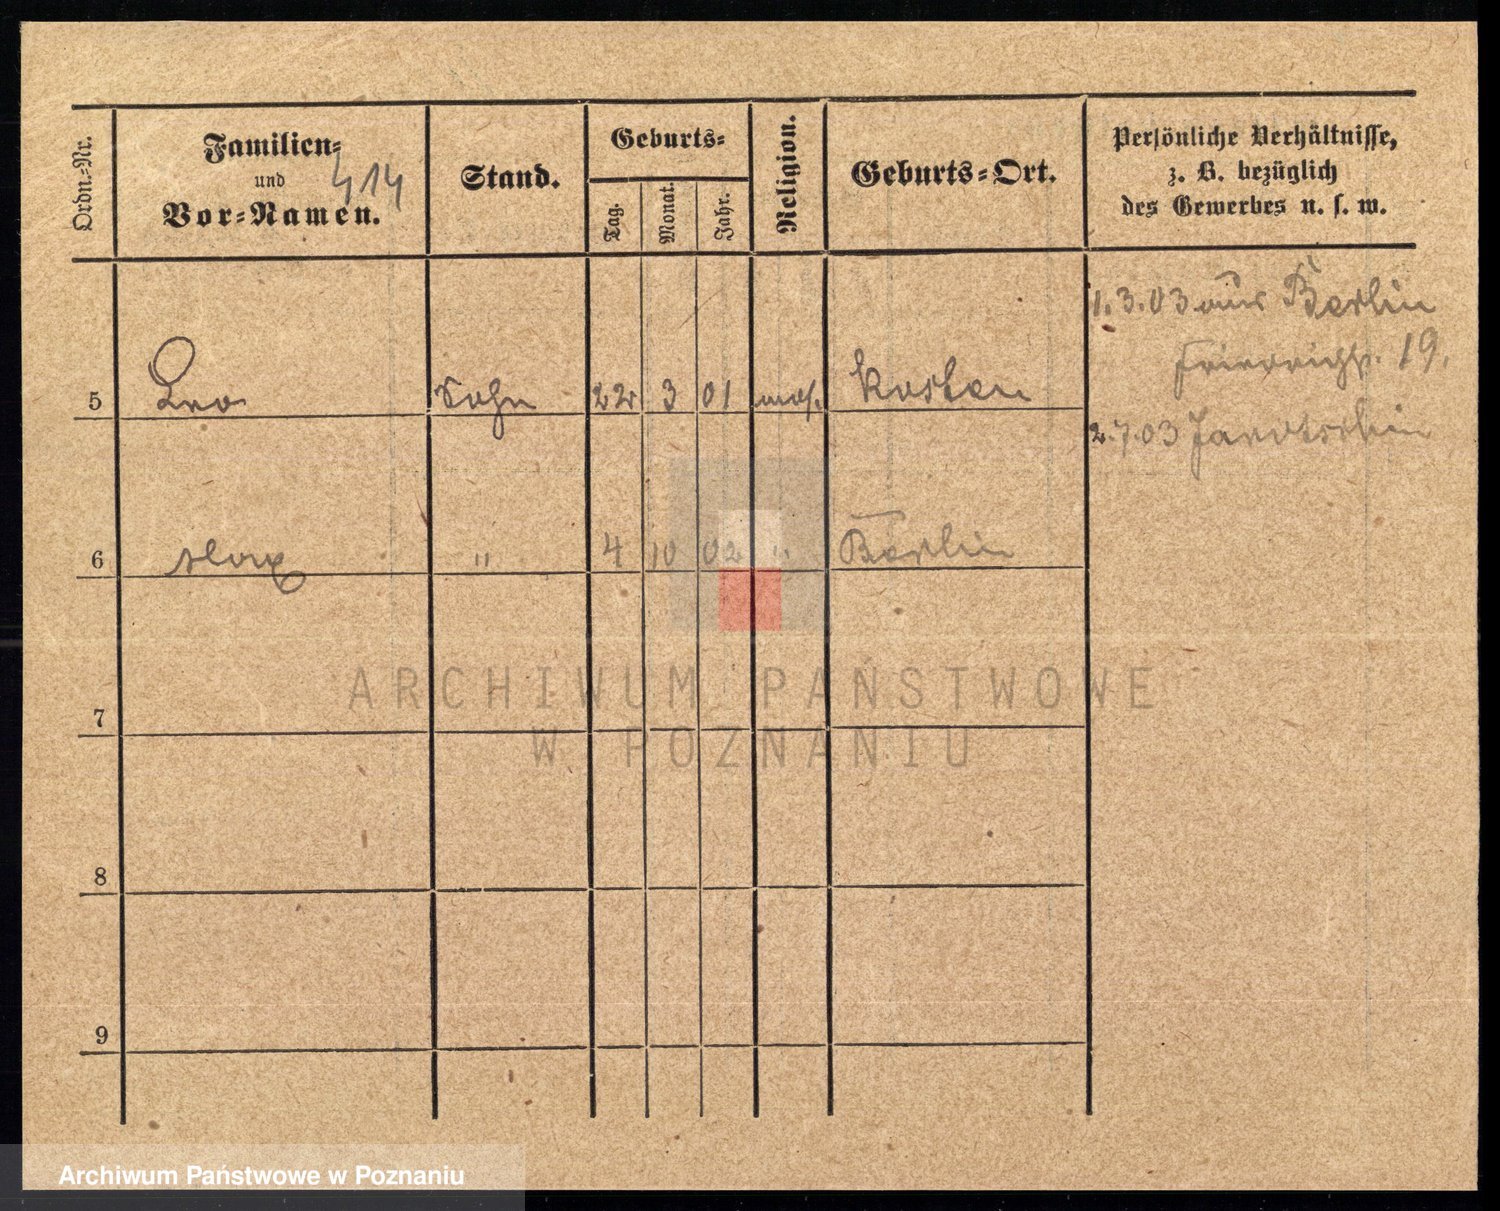 Ordn.-Nr.
Familien-
und
Vor-Namen.
414
Stand.
Geburts-
Tag.
Monat.
Jahr.
Religion.
Geburts-Ort.
Persönliche Verhältnisse,
z. B. bezüglich
des Gewerbes u. s. w.
1.3.03 aus Berlin
Friedrichstr. 19.
5 Leo Sohn 22 3 01 mos. Kosten
2.7.03 Jarotschin
6 Max " 4 10 02 " Berlin
ARCHIWUM PAŃSTWOWE
W POZNANIU
7
8
9
Archiwum Państwowe w Poznaniu